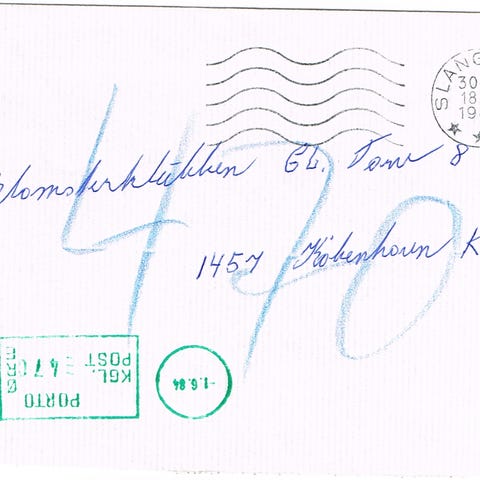 SLANG
30
18
19
lomsterklübben GL. Torv 8
1457 København K
470
PORTO
KGL. POST
470 ØRE
-1.6.84